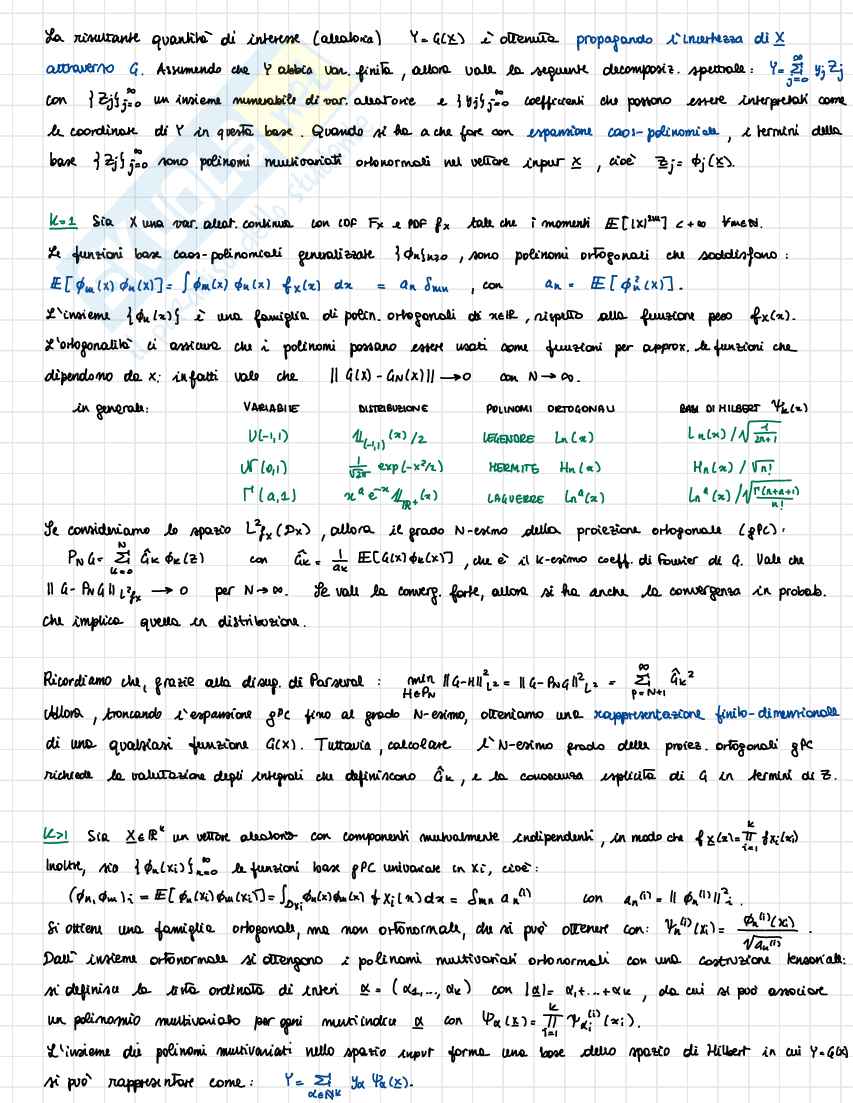 La risultante quantità di interesse (aleatoria) Y=G(X) è ottenuta propagando l'incertezza di X
attraverso G. Assumendo che Y abbia var. finita, allora vale la seguente decomposiz. spettrale: Y=∑_{j=0}^{∞} y_j Z_j
con {Z_j}_{j=0}^{∞} un insieme numerabile di var. aleatorie e {y_j}_{j=0}^{∞} coefficienti che possono essere interpretati come
le coordinate di Y in questa base. Quando si ha a che fare con espansione caos-polinomiale, i termini della
base {Z_j}_{j=0}^{∞} sono polinomi multivariati ortonormali nel vettore input X, cioè Z_j = ϕ_j(X).
K=1 Sia X una var. aleat. continua con CDF F_X e PDF f_X tale che i momenti E[|X|^{2m}] < +∞ ∀m∈N.
Le funzioni base caos-polinomiali generalizzate {ϕ_n}_{n≥0}, sono polinomi ortogonali che soddisfano:
E[ϕ_m(X) ϕ_n(X)] = ∫ϕ_m(x) ϕ_n(x) f_X(x) dx = a_n δ_{mn}, con a_n = E[ϕ_n²(X)].
L'insieme {ϕ_n(x)} è una famiglia di polin. ortogonali di x∈R, rispetto alla funzione peso f_X(x).
L'ortogonalità ci assicura che i polinomi possano essere usati come funzioni per approx. le funzioni che
dipendono da X; infatti vale che ||G(X) - G_N(X)|| → 0 con N→∞.
in generale: VARIABILE DISTRIBUZIONE POLINOMI ORTOGONALI BASI DI HILBERT Ψ_k(x)
U(-1,1) 𝟙_{(-1,1)}(x)/2 LEGENDRE L_n(x) L_n(x)/√(1/(2n+1))
N(0,1) 1/√2π exp(-x²/2) HERMITE H_n(x) H_n(x)/√n!
Γ(a,1) x^a e^{-x} 𝟙_{R+}(x) LAGUERRE L_n^a(x) L_n^a(x)/√(Γ(n+a+1)/n!)
Se consideriamo lo spazio L²_{f_X}(D_X), allora il grado N-esimo della proiezione ortogonale (gPC):
P_N G = ∑_{k=0}^{N} Ĝ_k ϕ_k(Z) con Ĝ_k = 1/a_k E[G(X)ϕ_k(X)], che è il k-esimo coeff. di Fourier di G. Vale che
||G - P_N G||_{L²_{f_X}} → 0 per N→∞. Se vale la converg. forte, allora si ha anche la convergenza in probab.
che implica quella in distribuzione.
Ricordiamo che, grazie alla disug. di Parseval: min_{H∈P_N} ||G-H||²_{L²} = ||G-P_N G||²_{L²} = ∑_{p=N+1}^{∞} Ĝ_k²
Allora, troncando l'espansione gPC fino al grado N-esimo, otteniamo una rappresentazione finito-dimensionale
di una qualsiasi funzione G(X). Tuttavia, calcolare l'N-esimo grado delle proiez. ortogonali gPC
richiede la valutazione degli integrali che definiscono Ĝ_k, e la conoscenza esplicita di G in termini di Z.
K>1 Sia X∈R^k un vettore aleatorio con componenti mutualmente indipendenti, in modo che f_X(x)=∏_{i=1}^{k} f_{X_i}(x_i)
Inoltre, sia {ϕ_n(x_i)}_{n=0}^{∞} le funzioni base gPC univariate in X_i, cioè:
(ϕ_n, ϕ_m)_i = E[ϕ_n(X_i)ϕ_m(X_i)] = ∫_{D_{X_i}} ϕ_n(x)ϕ_m(x) f_{X_i}(x)dx = δ_{mn} a_n^{(i)} con a_n^{(i)} = ||ϕ_n^{(i)}||²_i.
Si ottiene una famiglia ortogonale, ma non ortonormale, che si può ottenere con: Ψ_n^{(i)}(X_i) = ϕ_n^{(i)}(X_i)/√a_n^{(i)}.
Dall'insieme ortonormale si ottengono i polinomi multivariati ortonormali con una costruzione tensoriale:
si definisce la lista ordinata di interi α = (α_1,..., α_k) con |α| = α_1+...+α_k, da cui si può associare
un polinomio multivariato per ogni multiindice α con Ψ_α(X) = ∏_{i=1}^{k} Ψ_{α_i}^{(i)}(x_i).
L'insieme dei polinomi multivariati nello spazio input forma una base dello spazio di Hilbert in cui Y=G(X)
si può rappresentare come: Y = ∑_{α∈N^k} y_α Ψ_α(X).